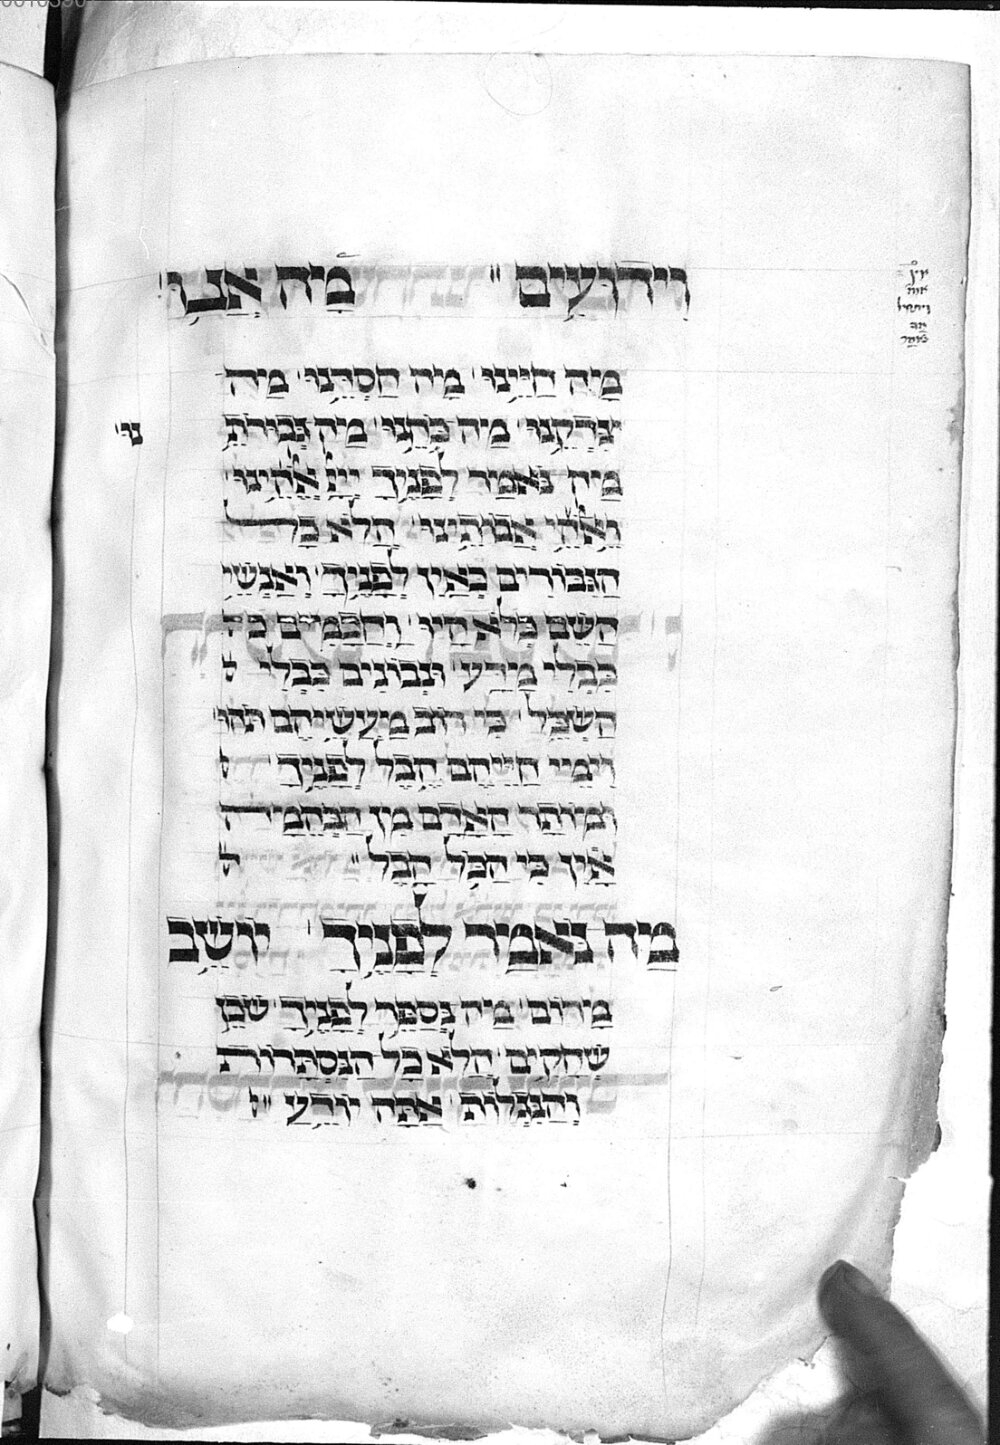 וידועים מה אנו
מה חיינו מה חסדנו מה
צדקנו מה כחנו מה גבורת
נו
מה נאמר לפניך ייי אלהינו
ואלהי אבותינו הלא כל
הגבורים כאין לפניך ואנשי
השם כלא היו וחכמים
כבלי מדע ונבונים כבלי
השכל כי רוב מעשיהם תהו
וימי חייהם הבל לפניך
ומותר האדם מן הבהמה
אין כי הכל הבל
מה נאמר לפניך יושב
מרום מה נספר לפניך שכן
שחקים הלא כל הנסתרות
והנגלות אתה יודע